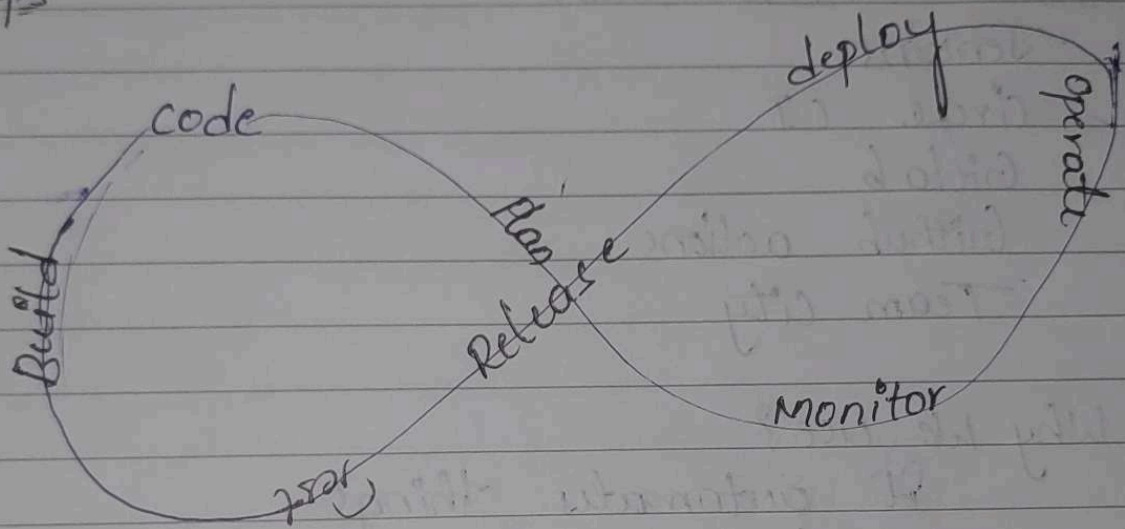 deploy
code
operate
Plan
Release
Build
Monitor
Test